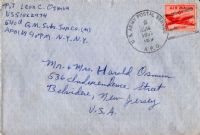 Pvt Leon C. Osmun
US51102974
540th Q.M. Subs. Sup. Co. (M)
Apo 180 P.M. N.Y. N.Y.
U.S. ARMY POSTAL SERVICE
A.P.O.
AIR MAIL
Mr. & Mrs. Harold Osmun
536 Independence Street
Belvidere, New Jersey
U.S.A.